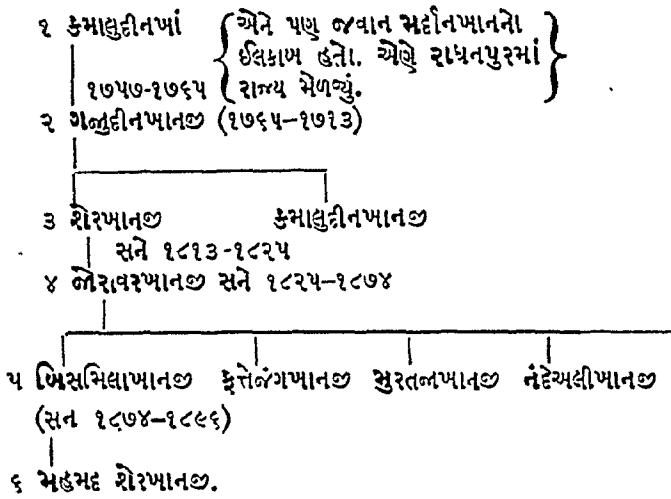 ૧ કમાલુદીનખાં { એને પણ જવાન મર્દાનખાનનો
ઈલકાબ હતો. એણે રાધનપુરમાં
૧૭૫૭-૧૭૬૫ રાજ્ય મેળવ્યું. }
૨ ગાજુદીનખાનજી (૧૭૬૫–૧૭૧૩)
૩ શેરખાનજી કમાલુદ્દીનખાનજી
સને ૧૮૧૩-૧૮૨૫
૪ જોરાવરખાનજી સને ૧૮૨૫–૧૮૭૪
૫ બિસમિલાખાનજી ફત્તેજંગખાનજી સુરતજાખાનજી નંદેઅલીખાનજી
(સન ૧૮૭૪–૧૮૯૬)
૬ મહમદ શેરખાનજી.